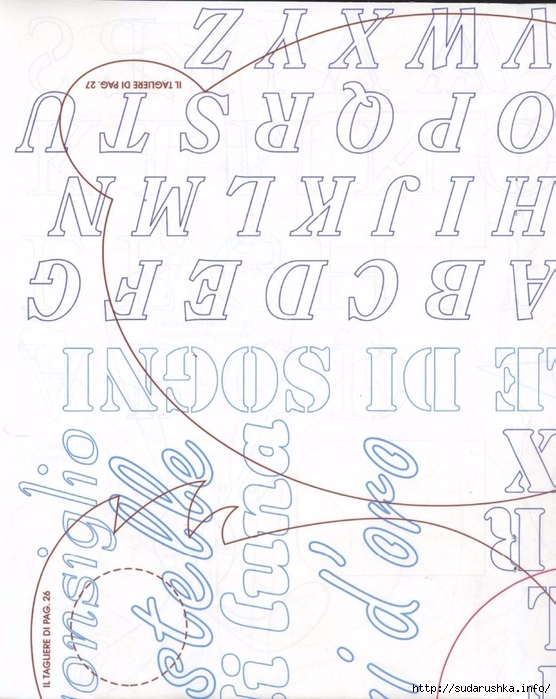 IL TAGLIERE DI PAG. 27
ABCDEFG
HIJKLMN
OPQRSTU
VWXYZ
LE DI SOGNI
onsiglio
stelle
i luna
i d'oro
IL TAGLIERE DI PAG. 26
http://sudarushka.info/